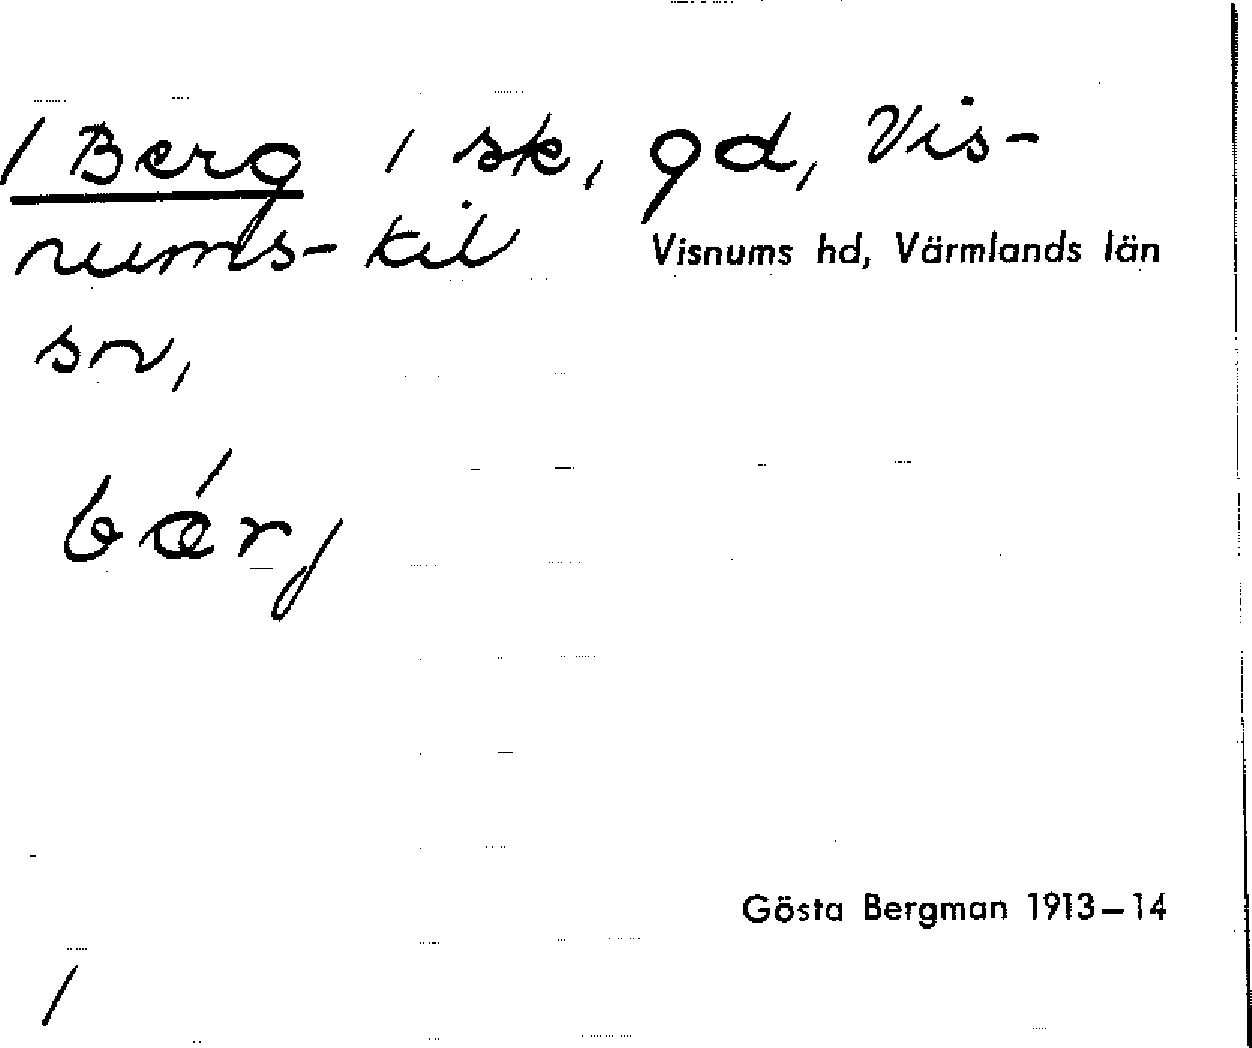 / Berg / sk, gd, Vis-
nums-kil
Visnums hd, Värmlands län
sn,
bǽrj
Gösta Bergman 1913–14
/